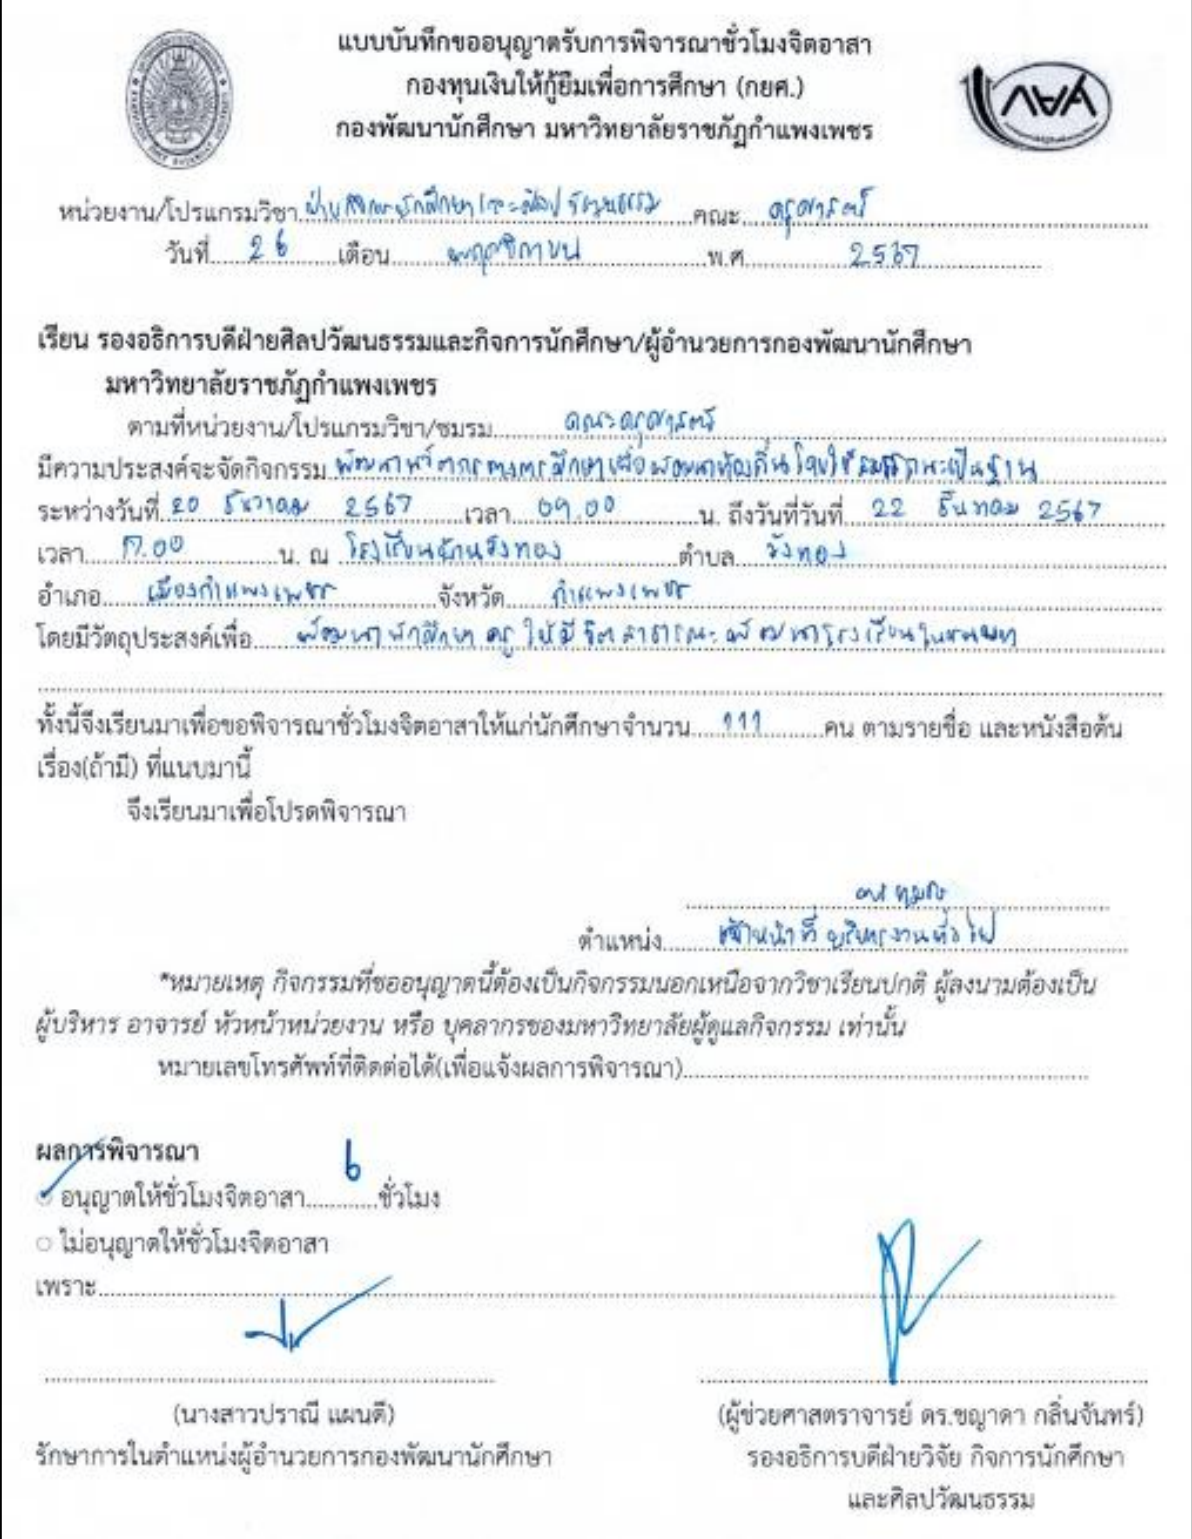 แบบบันทึกขออนุญาตรับการพิจารณาชั่วโมงจิตอาสา
กองทุนเงินให้กู้ยืมเพื่อการศึกษา (กยศ.)
กองพัฒนานักศึกษา มหาวิทยาลัยราชภัฏกำแพงเพชร
กยศ
หน่วยงาน/โปรแกรมวิชา ฝ่ายพัฒนานักศึกษาและศิลปวัฒนธรรม คณะ ครุศาสตร์
วันที่ 26 เดือน พฤศจิกายน พ.ศ. 2567
เรียน รองอธิการบดีฝ่ายศิลปวัฒนธรรมและกิจการนักศึกษา/ผู้อำนวยการกองพัฒนานักศึกษา
มหาวิทยาลัยราชภัฏกำแพงเพชร
ตามที่หน่วยงาน/โปรแกรมวิชา/ชมรม คณะครุศาสตร์
มีความประสงค์จะจัดกิจกรรม พัฒนาทรัพยากรทางการศึกษาเพื่อพัฒนาท้องถิ่นโดยใช้สมรรถนะเป็นฐาน
ระหว่างวันที่ 20 ธันวาคม 2567 เวลา 09.00 น. ถึงวันที่วันที่ 22 ธันวาคม 2567
เวลา 17.00 น. ณ โรงเรียนบ้านวังทอง ตำบล วังทอง
อำเภอ เมืองกำแพงเพชร จังหวัด กำแพงเพชร
โดยมีวัตถุประสงค์เพื่อ พัฒนานักศึกษาครูให้มีจิตสาธารณะพัฒนาโรงเรียนในชนบท
ทั้งนี้จึงเรียนมาเพื่อขอพิจารณาชั่วโมงจิตอาสาให้แก่นักศึกษาจำนวน 111 คน ตามรายชื่อ และหนังสือต้น
เรื่อง(ถ้ามี) ที่แนบมานี้
จึงเรียนมาเพื่อโปรดพิจารณา
ตำแหน่ง เจ้าหน้าที่บริหารงานทั่วไป
*หมายเหตุ กิจกรรมที่ขออนุญาตนี้ต้องเป็นกิจกรรมนอกเหนือจากวิชาเรียนปกติ ผู้ลงนามต้องเป็น
ผู้บริหาร อาจารย์ หัวหน้าหน่วยงาน หรือ บุคลากรของมหาวิทยาลัยผู้ดูแลกิจกรรม เท่านั้น
หมายเลขโทรศัพท์ที่ติดต่อได้(เพื่อแจ้งผลการพิจารณา)
ผลการพิจารณา
อนุญาตให้ชั่วโมงจิตอาสา 6 ชั่วโมง
ไม่อนุญาตให้ชั่วโมงจิตอาสา
เพราะ
(นางสาวปราณี แผนดี) (ผู้ช่วยศาสตราจารย์ ดร.ชญาดา กลิ่นจันทร์)
รักษาการในตำแหน่งผู้อำนวยการกองพัฒนานักศึกษา รองอธิการบดีฝ่ายวิจัย กิจการนักศึกษา
และศิลปวัฒนธรรม